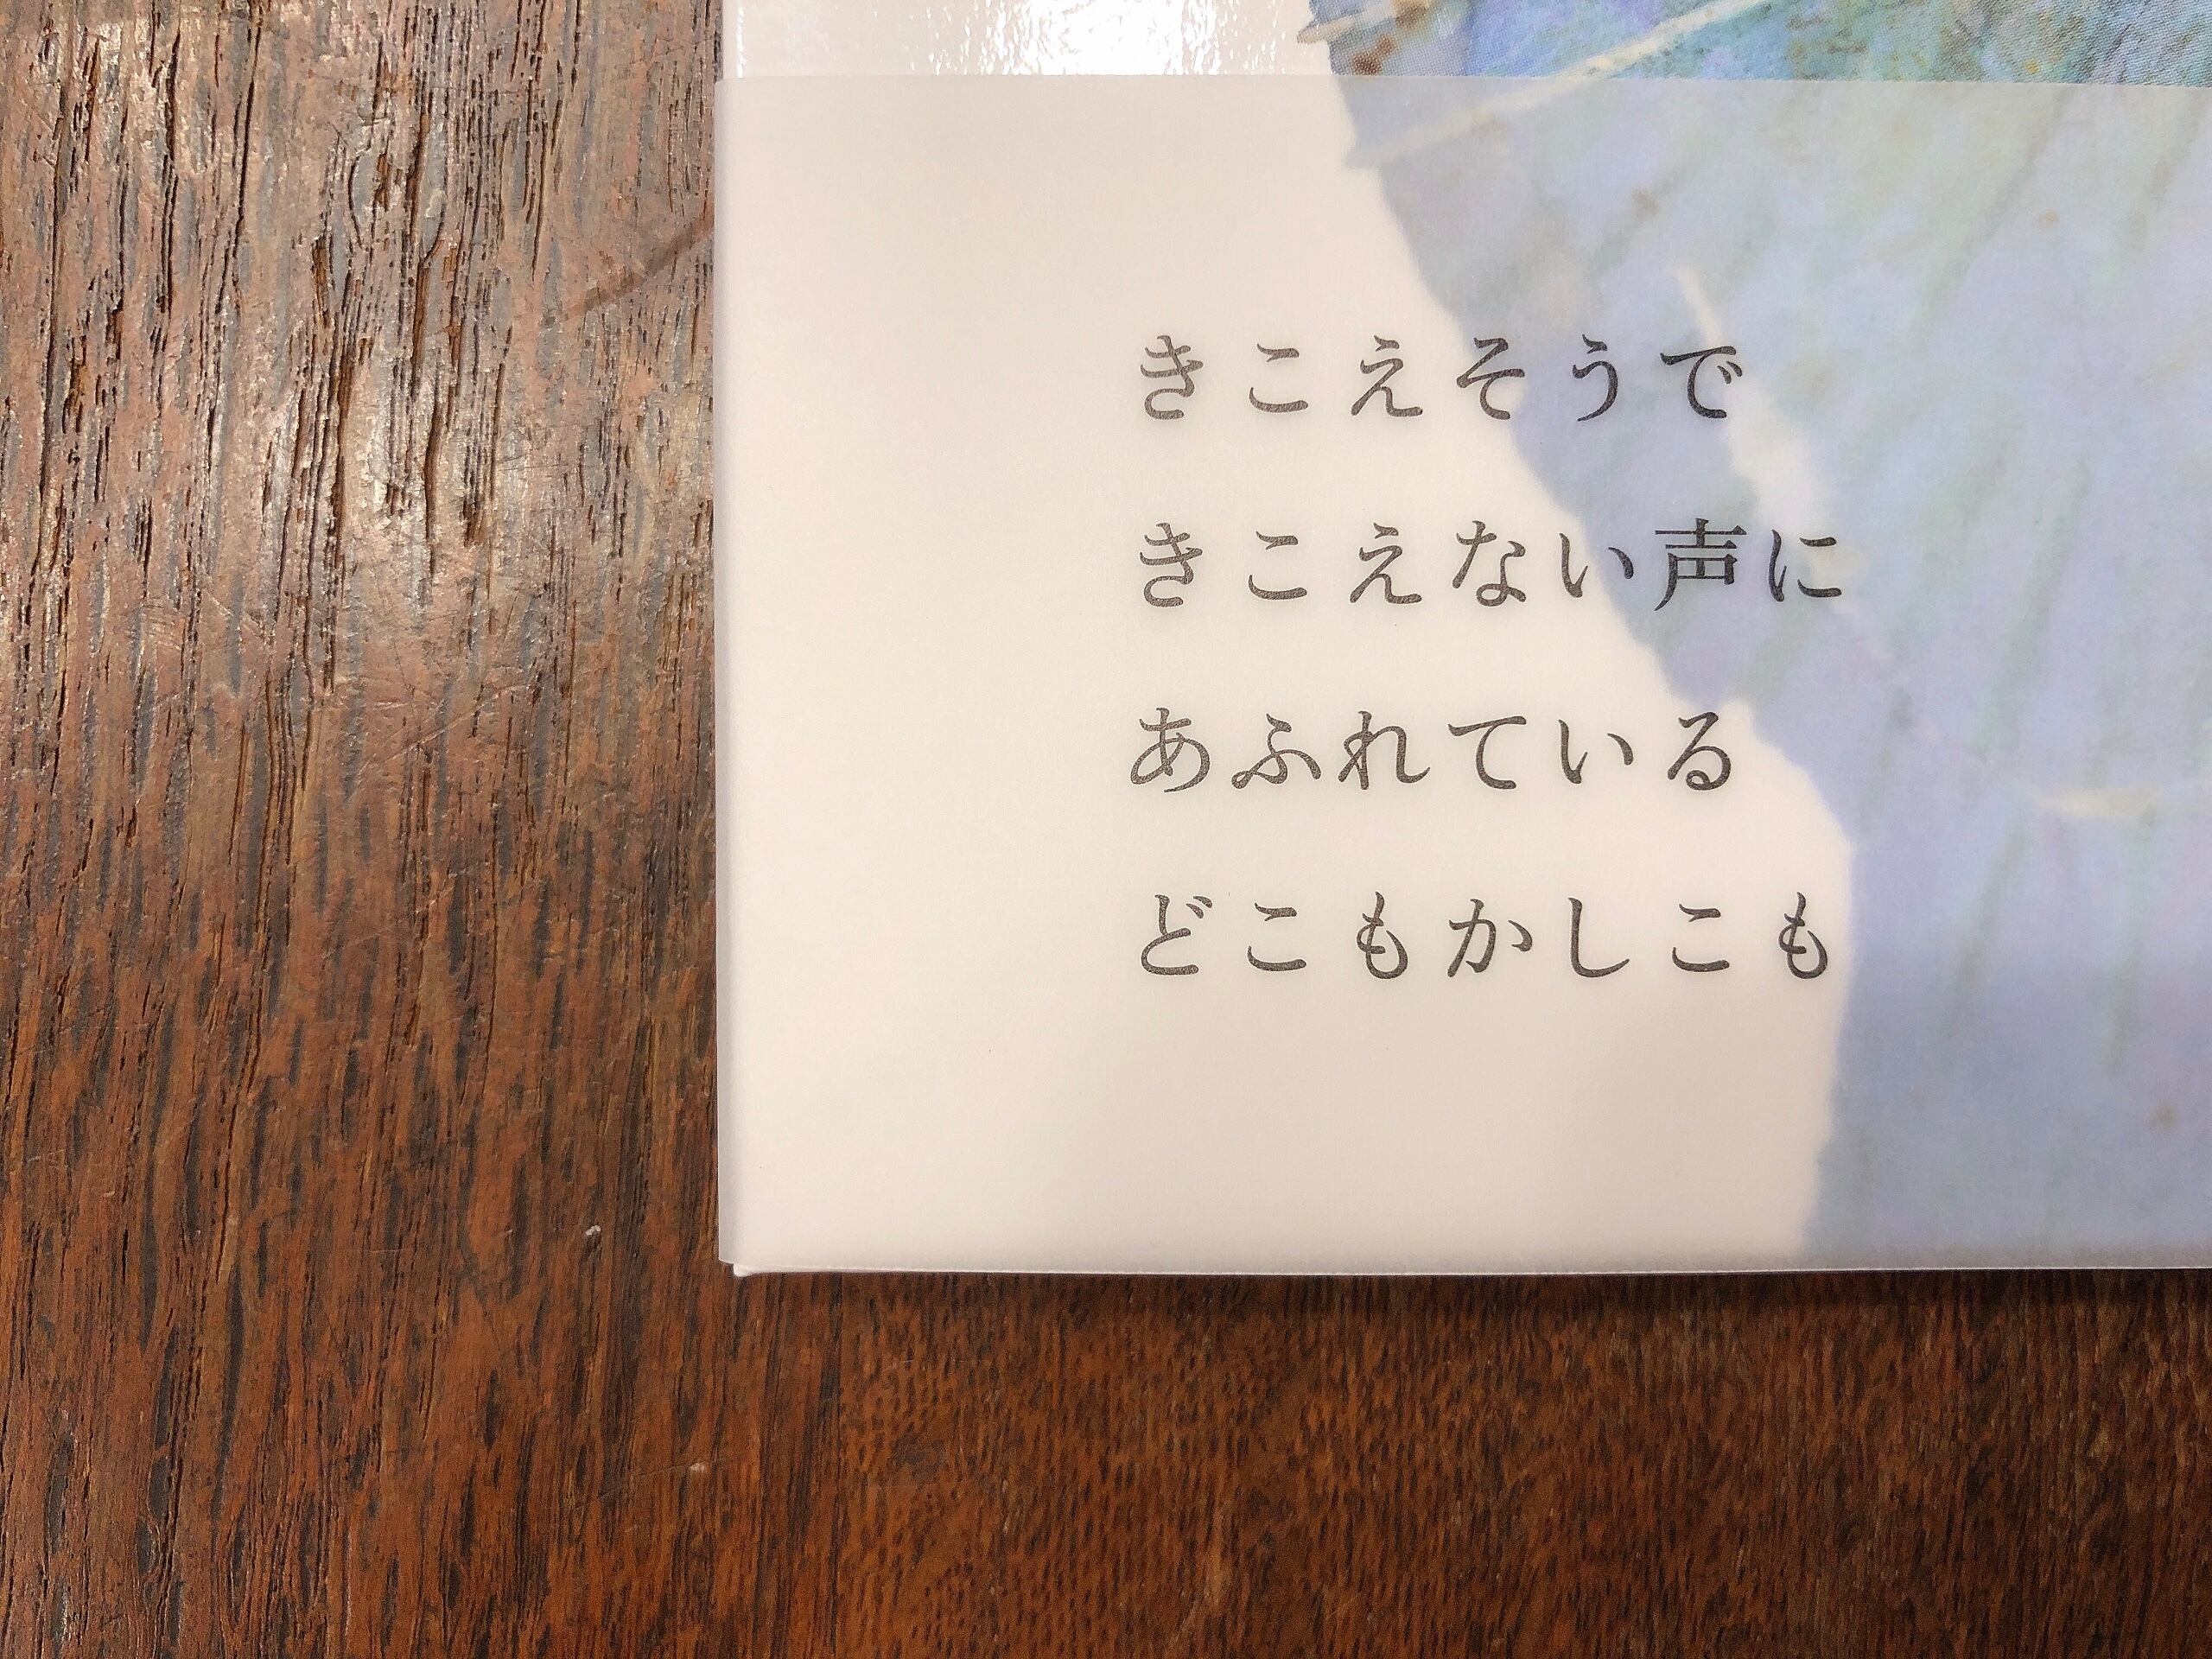 きこえそうで
きこえない声に
あふれている
どこもかしこも